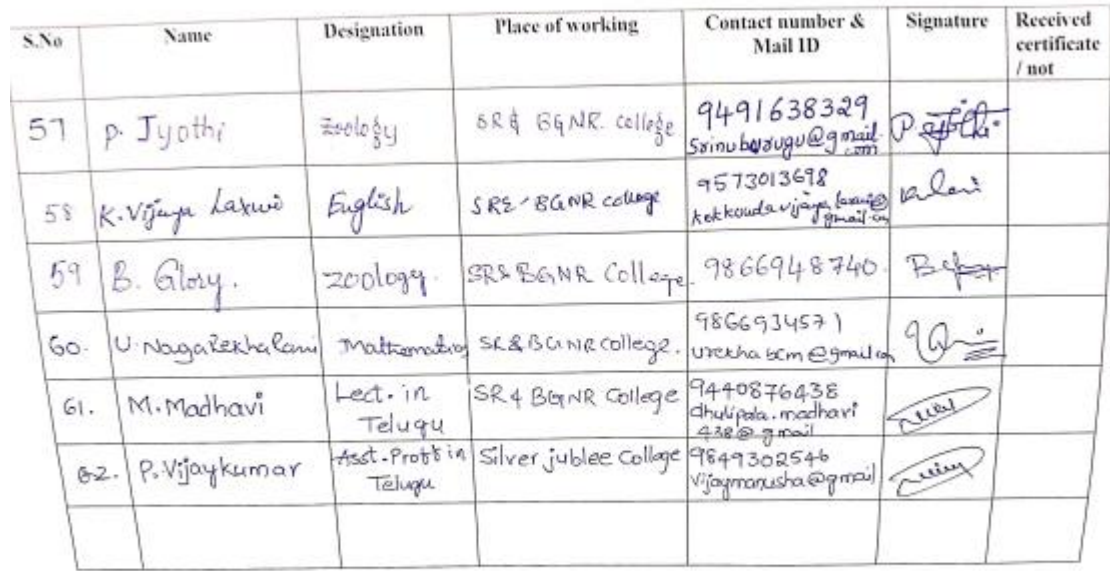 S.No Name Designation Place of working Contact number & Mail ID Signature Received certificate / not
57 P. Jyothi Zoology SR & BGNR. College 9491638329
58 K. Vijaya Laxmi English SRE BGNR college 9573013698
59 B. Glory. Zoology. SR & BGNR College. 9866948740.
60. U. NagaRekhaRani Mathematics SR & BGNR College. 9866934571
urekhabcm@gmail.com
61. M. Madhavi Lect. in Telugu SR & BGNR College 9440876438
dhulipala.madhavi
438@gmail
62. P. Vijaykumar Asst. Proff in Telugu Silver jublee College 9849302546
Vijaymanusha@gmail